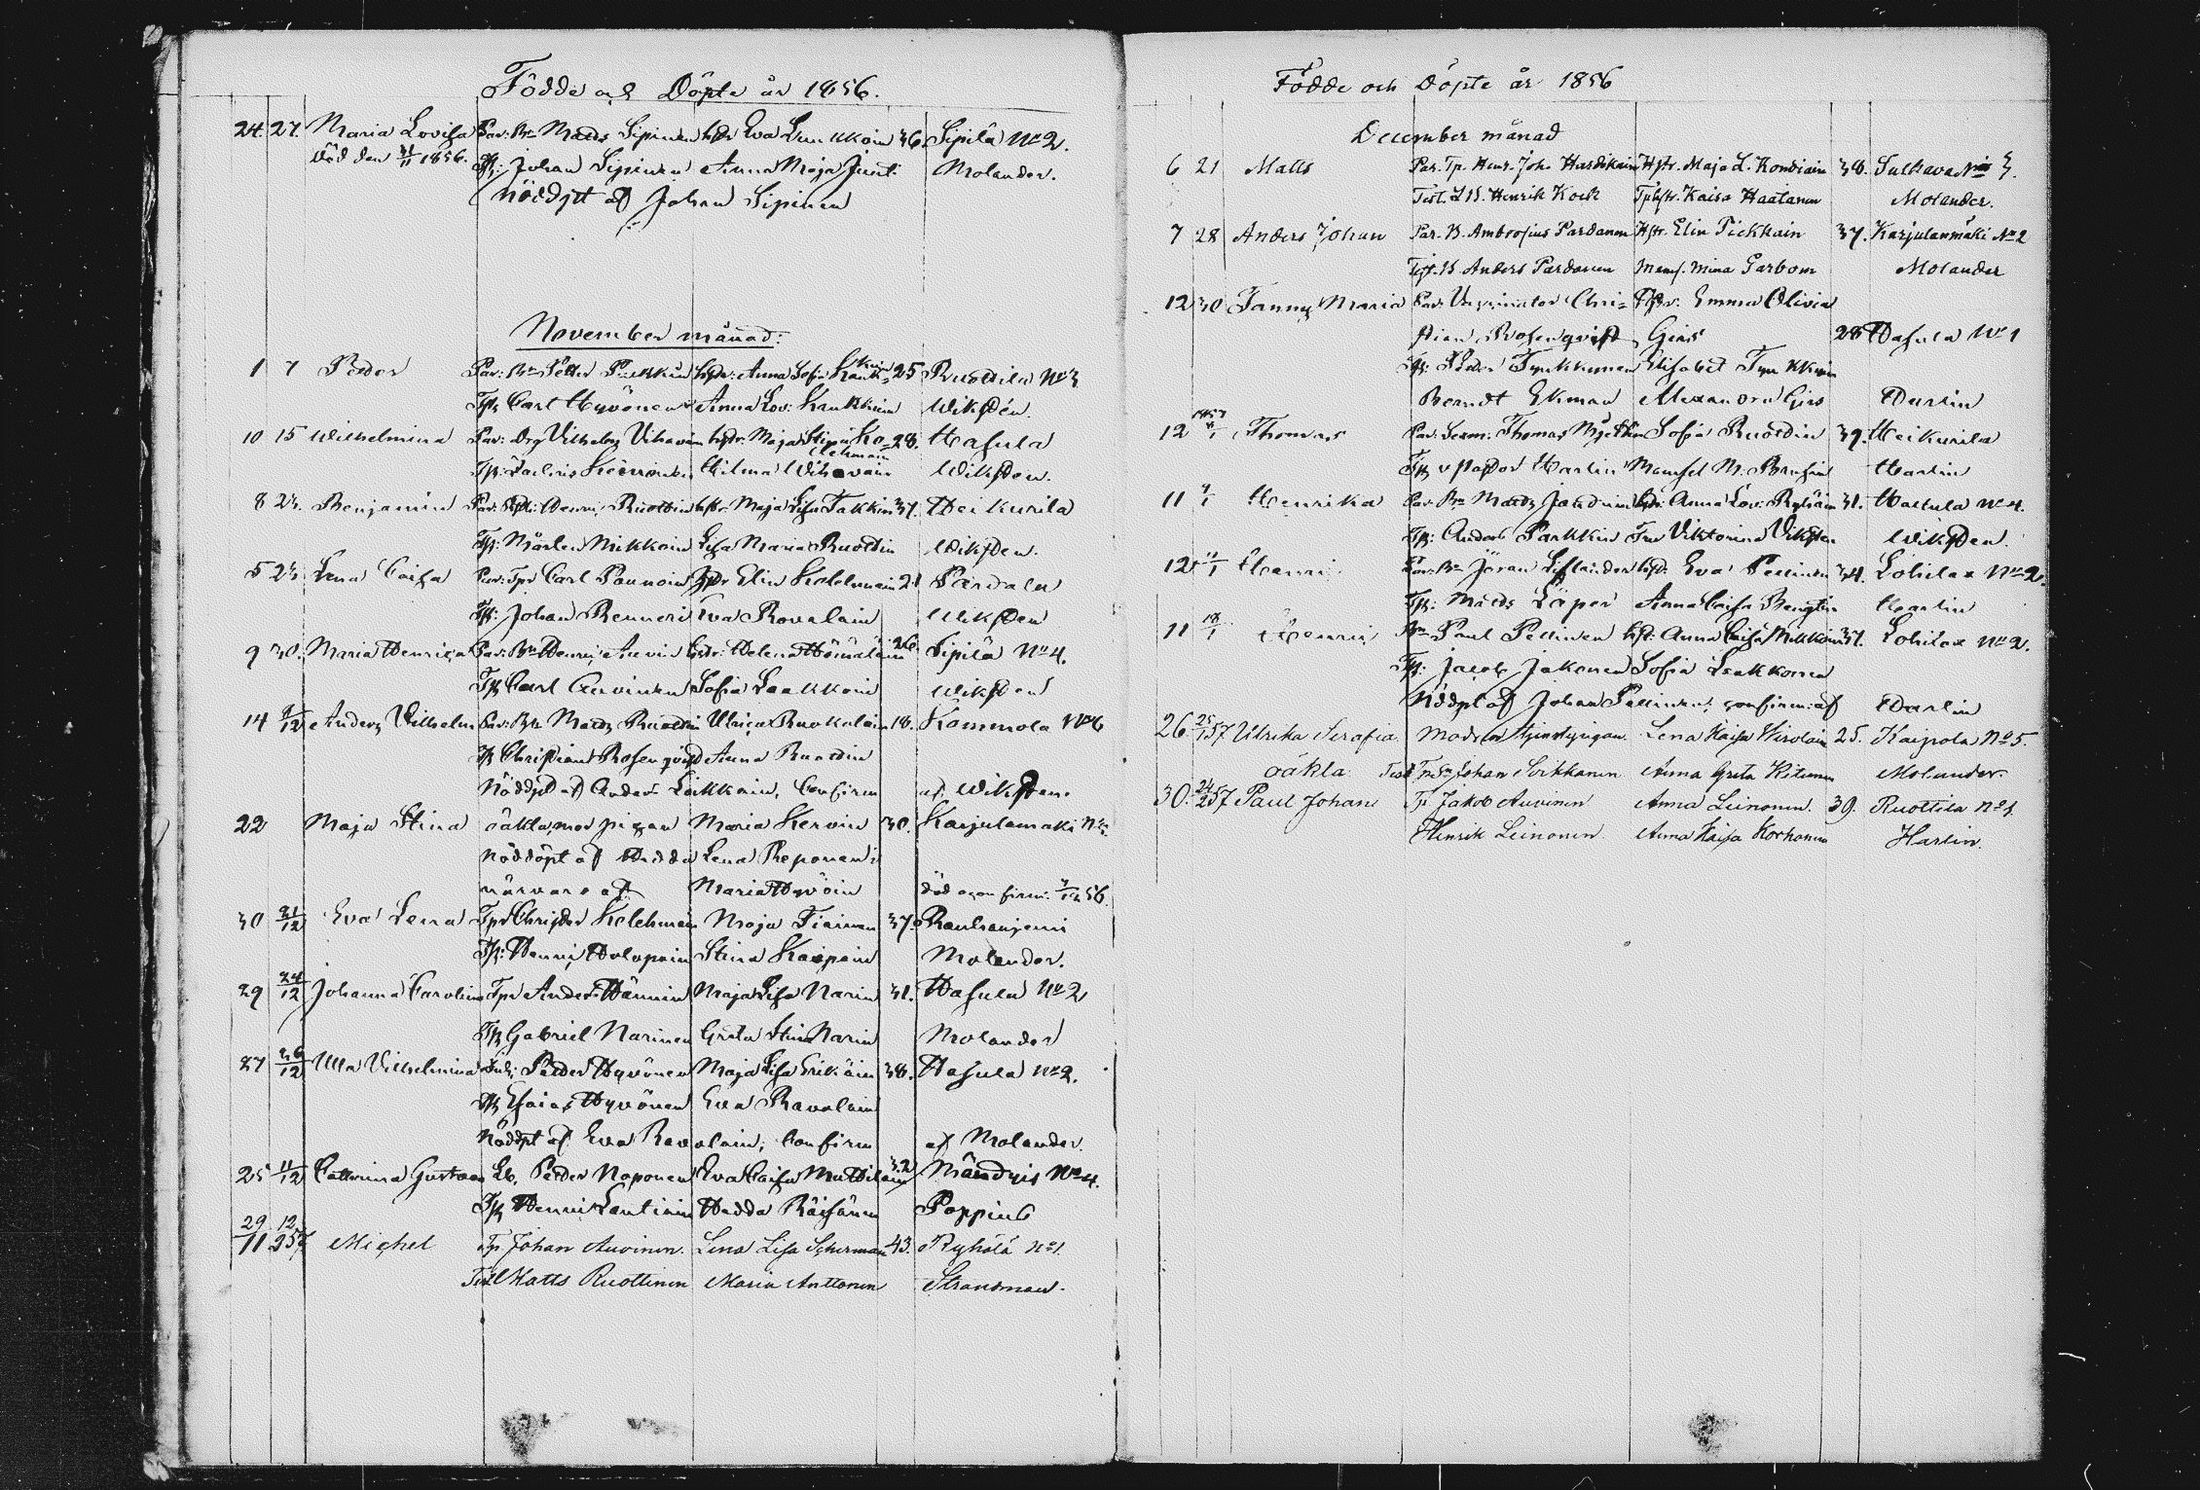 Födde och Döpte år 1856.
24. 27. Maria Lovisa Par: Bn Matts Sipinen hstr Eva Laukkain 36. Sipilä No 2.
Död den 21/11 1856. Tst: Johan Sipinen Anna Maja Junt. Molander.
Nöddpt af Johan Sipinen
November månad:
1 7 Petter Par: Bn Petter Puikkin hstr: Anna Sofia 25 Ruottila No 3
Tst Carl Hyvönen Anna Lov: Laukkain Wiksten.
10 15 Wilhelmina Par: Drg Vilhelm Vihavain hstr: Maja Stina Ko= 28. Hasula
lehmain
Tst: Hilma Wihavain Wiksten.
8 23. Benjamin Par: Henric Ruottin hstr: Maja Lisa Takkin 37. Heikurila
Tst: Mårten Mikkoin Lisa Maria Ruottin Wiksten.
5 23 Lena Caisa Par: Tpr Carl Paunoin Hstr Elin Kolehmain 21 Pardala
Tst: Johan Renneri Eva Rovalain Wiksten
9 30. Maria Henrica Par: Bn Henric Auvin hstr: Helena Hämäläin 26. Sipilä No 4.
Tst Carl Auvinen Sofia Laakkoin Wiksten
14 /12 Anders Vilhelm Par: Matts Ruottin Ulrica Ruokolain 18. Kommola No 6
Tst Christian Rosenqvist Anna Ruottin
Nöddpt af Anders Leikkain, Confirm af Wiksten.
22 Maja Stina oäkta, mod pigan Maria Kervin 30. Karjulamäki No
Nöddöpt af Hedda Lena Reponen i
närvaro af Maria Hyvöin död oconfirm: 7/12 56.
30 21/12 Eva Lena Tpr Christer Kolehmain Maja Tiainen 37. Rauhaniemi
Tst: Henric Holopain Stina Kaipain Molander.
29 24/12 Johanna Carolina Tpr Anders Hännin Maja Lisa Narin 31. Hasula No 2
Tst Gabriel Narinen Greta Stina Narin Molander
27 26/12 Ulla Vilhelmina Petter Hyvönen Maja Lisa Erikäin 38. Hasula No 2.
Tst Esaias Hyvönen Eva Ravolain
Nöddpt af Eva Ravolain; Confirm af Molander.
25 11/12 Cathrina Gustava Lb. Petter Noponen Eva Caisa Muttilain 32 Mändyis No 4.
Tst Henric Lautiain Hedda Räisänen Poppius
29/11 12/2 57 Michel Tp. Johan Auvinen. Lena Lisa Scherman 43. Ryhälä No 1.
Test Matts Ruottinen Maria Anttonen Strandman.
Födde och Döpte år 1856
December månad
6 21 Matts Par. Tp. Henr. Joh. Hardikain Hstr. Maja L. Kondiain 38. Sulkava No 3.
Test. Henrik Kock Tphstr. Kaisa Haatanen Molander.
7 28 Anders Johan Par. B. Ambrosius Pardanen Hstr. Elin Pickkain 37. Karjulanmäki No 2
Test. B Anders Pardanen Mams. Mina Garbom Molander
12 30 Fanny Maria Par: Vaccinator Chri= Hstr: Emma Olivia
stian Rosenqvist Girs 28 Hasula No 1
Tst: Petter Tynkkynen Elisabet Tynkkynen
Berndt Ekman Alexandra Girs Harlin
12 1857 /1 Thomas Par. Thomas Sofia Ruottin 39. Heikurila
Tst v Pastor Harlin Mamsel M. Harlin
11 /1 Henrika Par. Bn Matts Jantuin hstr: Anna Lov: Ryhäin 31. Hartula No 4.
Tst: Anders Parkkin Fru Viktorina Viksten Wiksten.
12 11/1 Henric Par. Bn Jöran Liflander hstr: Eva Pellinen 34. Lohilax No 2.
Tst: Matts Läper Anna Caisa Bengtin Harlin
11 18/1 Henric Bn Paul Pellinen hstr: Anna Caisa Mikkoin 31. Lohilax No 2.
Tst: Jacob Jakonen Sofia Laakkonen
Nödpt af Johan Pellinen; confirm: af Harlin
26 25/1 57 Ulrika Serafia Modren tjenstepigan Lena Kaisa Hirolain 25. Kaipola No 5.
oäkta Test Johan Sorkkanen Anna Greta Hitunen Molander.
30. 24/2 57 Paul Johan Tp Jakob Auvinen Anna Leinonen 39. Ruottila No 1.
Henrik Leinonen Anna Kaisa Korhonen Harlin.